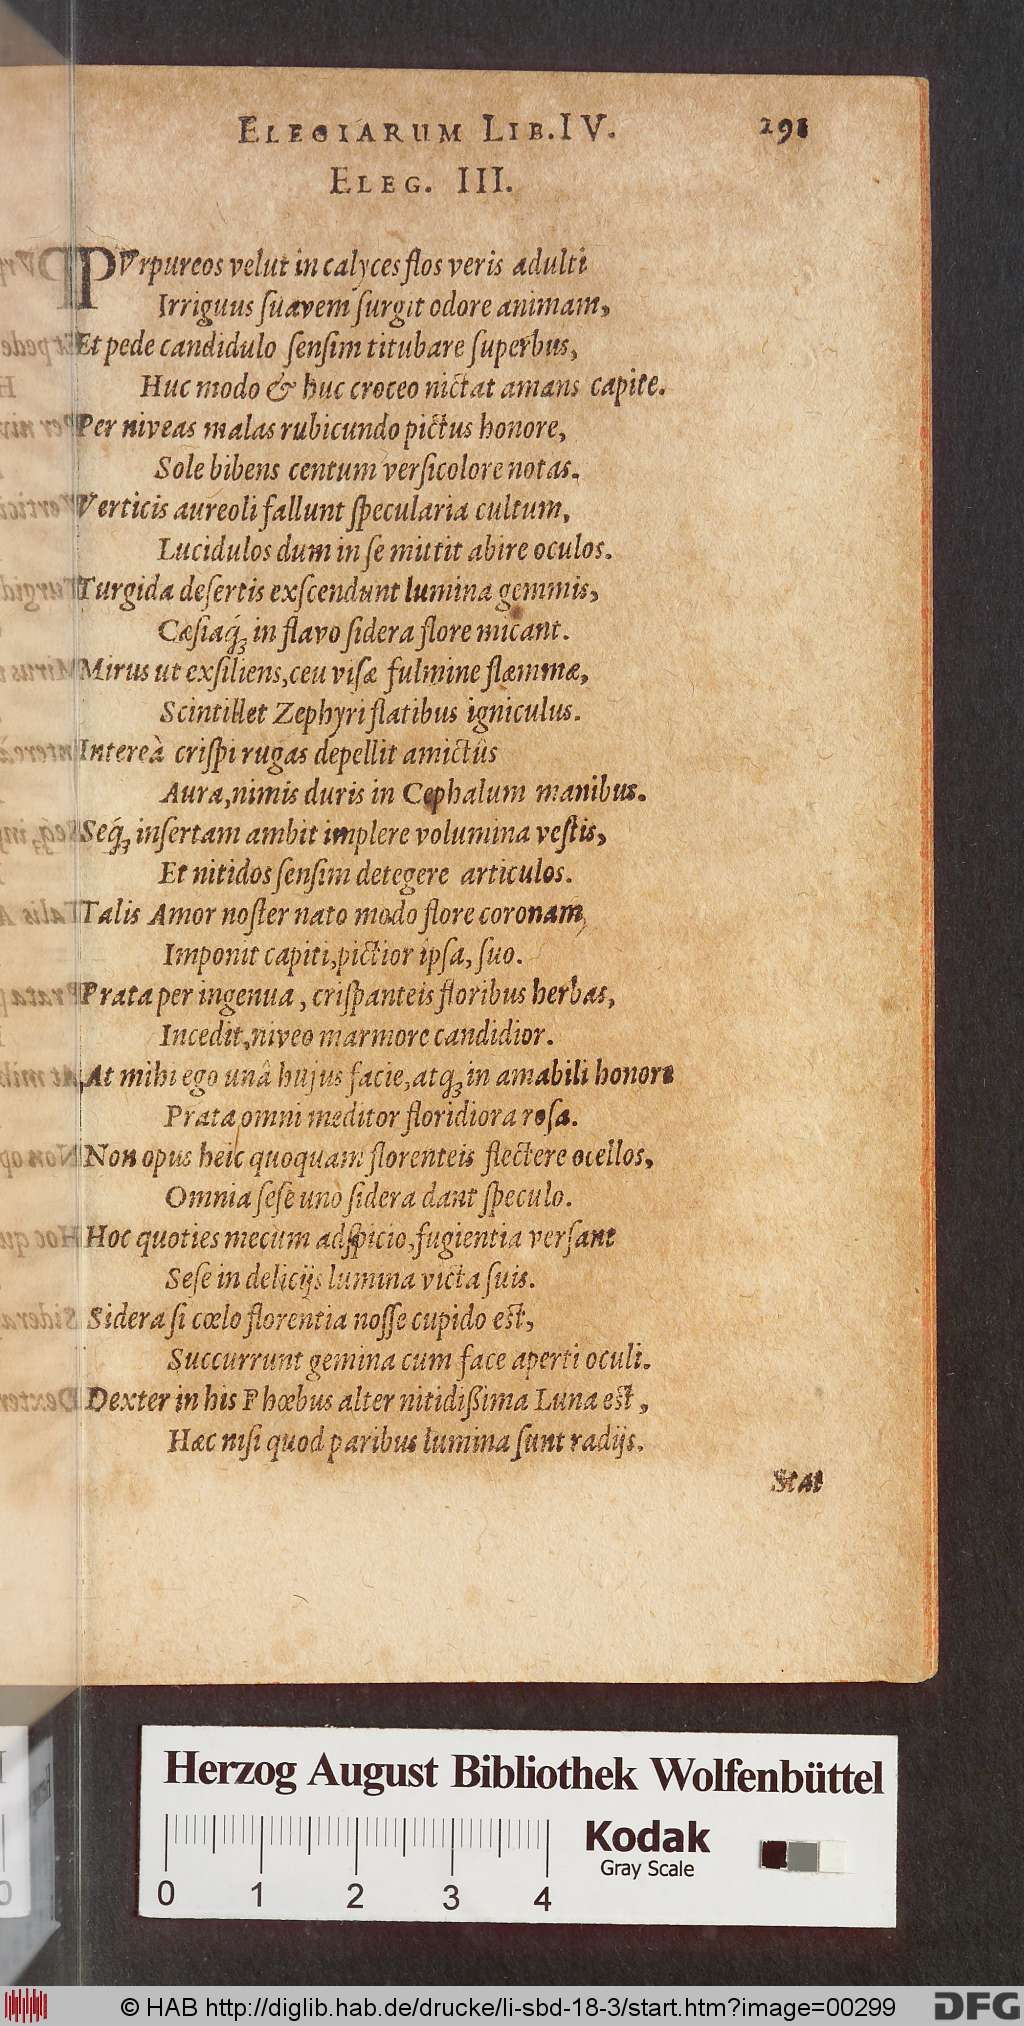 ELEGIARUM LIB. IV. 291
ELEG. III.
PVrpureos velut in calyces flos veris adulti
Irriguus ſuavem ſurgit odore animam,
Et pede candidulo ſenſim titubare ſuperbus,
Huc modo & huc croceo nictat amans capite.
Per niveas malas rubicundo pictus honore,
Sole bibens centum verſicolore notas.
Verticis aureoli fallunt ſpecularia cultum,
Lucidulos dum in ſe mittit abire oculos.
Turgida deſertis exſcendunt lumina gemmis,
Cæſiaq́; in flavo ſidera flore micant.
Mirus ut exſiliens, ceu viſæ fulmine flammæ,
Scintillet Zephyri flatibus igniculus.
Intereà criſpi rugas depellit amictûs
Aura, nimis duris in Cephalum manibus.
Seq́; inſertam ambit implere volumina veſtis,
Et nitidos ſenſim detegere articulos.
Talis Amor noſter nato modo flore coronam,
Imponit capiti, pictior ipſa, ſuo.
Prata per ingenua, criſpanteis floribus herbas,
Incedit, niveo marmore candidior.
At mihi ego unâ hujus facie, atq; in amabili honore
Prata omni meditor floridiora roſa.
Non opus heic quoquam florenteis flectere ocellos,
Omnia ſeſe uno ſidera dant ſpeculo.
Hoc quoties mecum adſpicio, fugientia verſant
Seſe in delicijs lumina victa ſuis.
Sidera ſi cœlo florentia noſſe cupido eſt,
Succurrunt gemina cum face aperti oculi.
Dexter in his Phœbus alter nitidißima Luna eſt,
Hæc niſi quod paribus lumina ſunt radijs.
Stat
Herzog August Bibliothek Wolfenbüttel
Kodak
Gray Scale
0 1 2 3 4
© HAB http://diglib.hab.de/drucke/li-sbd-18-3/start.htm?image=00299
DFG